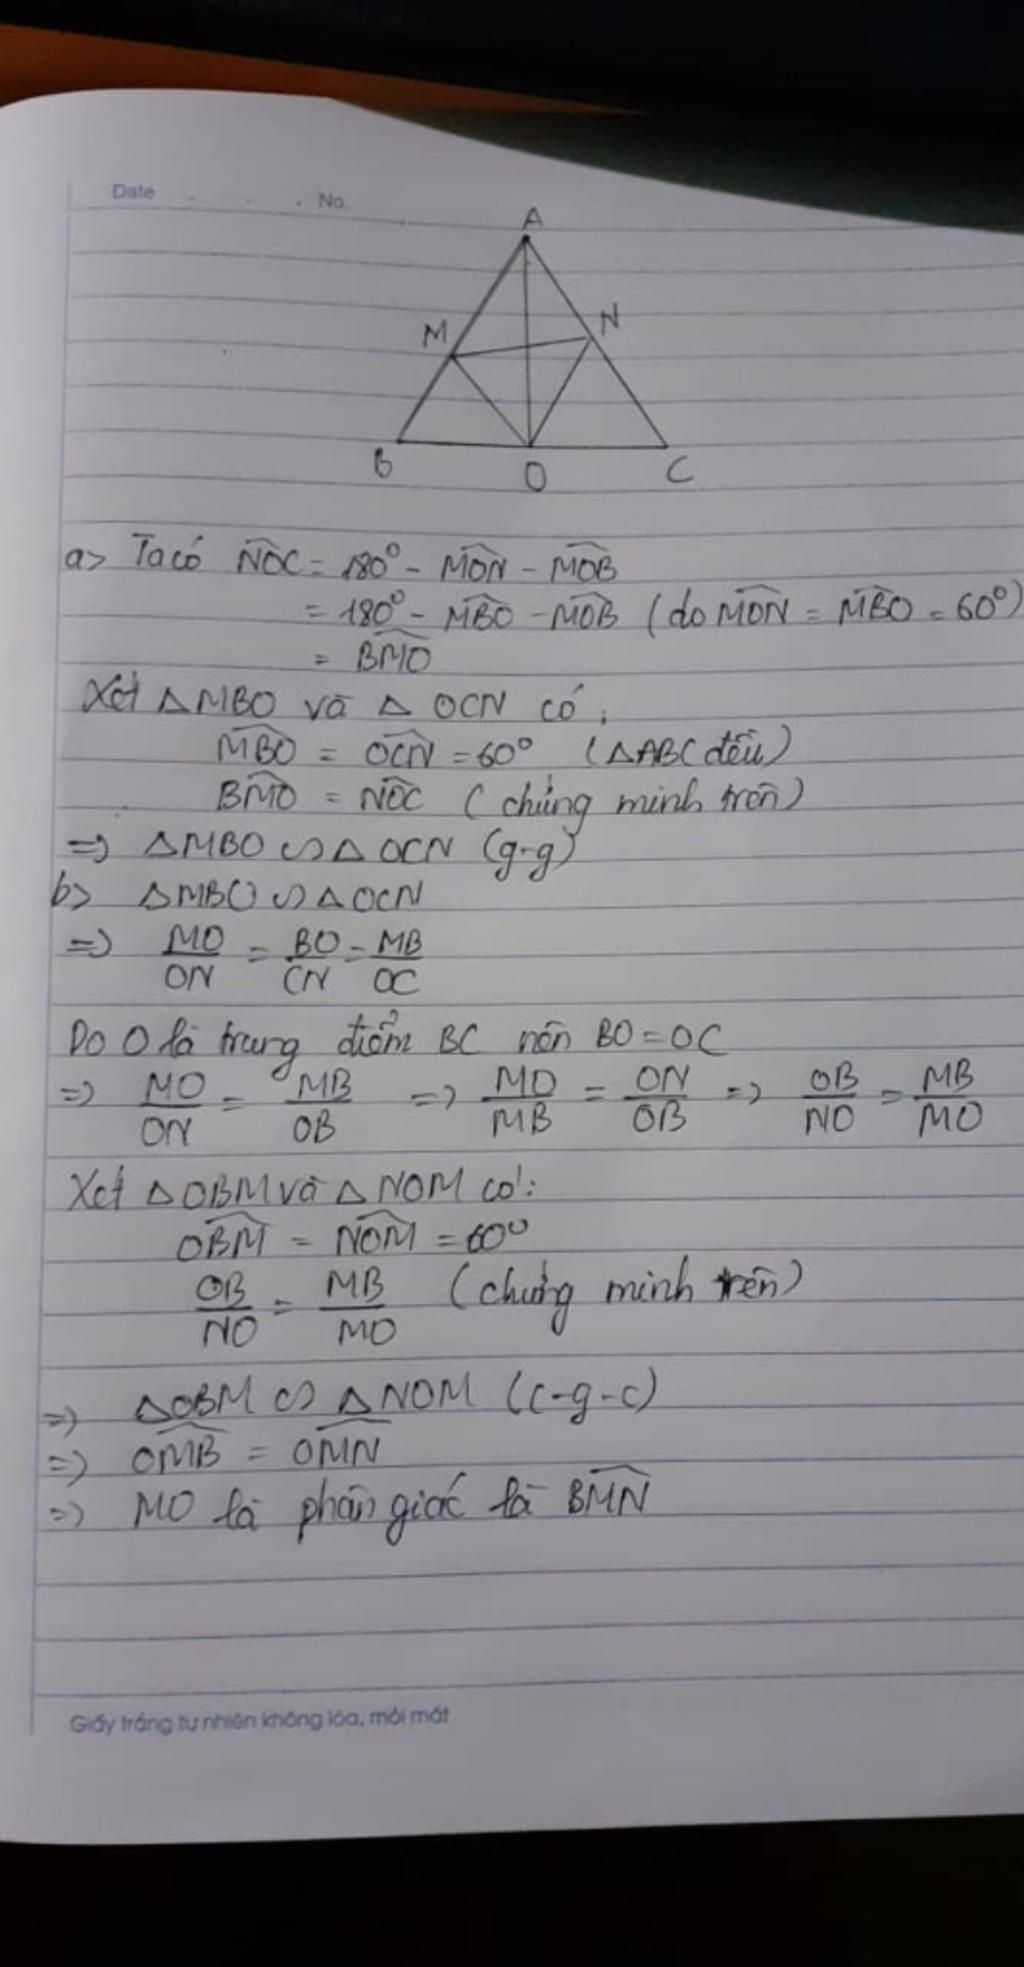 Date . . . No.
A
M
N
B
O
C
a> Ta có NOC = 180° - MON - MOB
= 180° - MBO - MOB (do MON = MBO = 60°)
= BMO
Xét △MBO và △ OCN có:
MBO = OCN = 60° (△ABC đều)
BMO = NOC (chứng minh trên)
=> △MBO ∽ △ OCN (g-g)
b> △MBO ∽ △OCN
=> MO/ON = BO/CN = MB/OC
Do O là trung điểm BC nên BO = OC
=> MO/ON = MB/OB => MO/MB = ON/OB => OB/NO = MB/MO
Xét △OBM và △NOM có:
OBM = NOM = 60°
OB/NO = MB/MO (chứng minh trên)
=> △OBM ∽ △NOM (c-g-c)
=> OMB = OMN
=> MO là phân giác là BMN
Giấy trắng tự nhiên không lóa, mỏi mắt